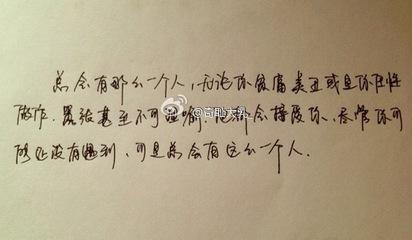 总会有那么一个人,无论你贫富美丑或是你任性
做作.嚣张甚至不可理喻.他都会接受你,尽管你可
能还没有遇到,可是总会有这么一个人.